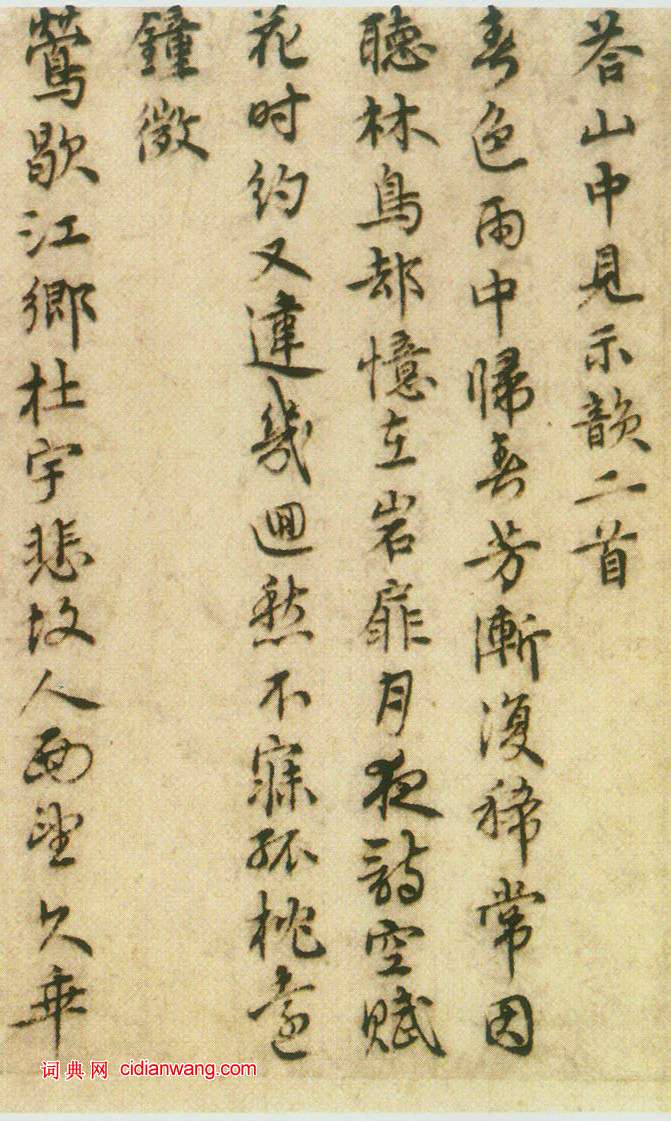 荅山中見示韻二首
春色雨中歸春芳漸復稀常因
聴林鳥却憶在岩扉月夜詩空賦
花时約又違幾迴愁不寐孤枕遠
鐘微
鶯歇江鄉杜宇悲故人西望久乖
词典网 cidianwang.com